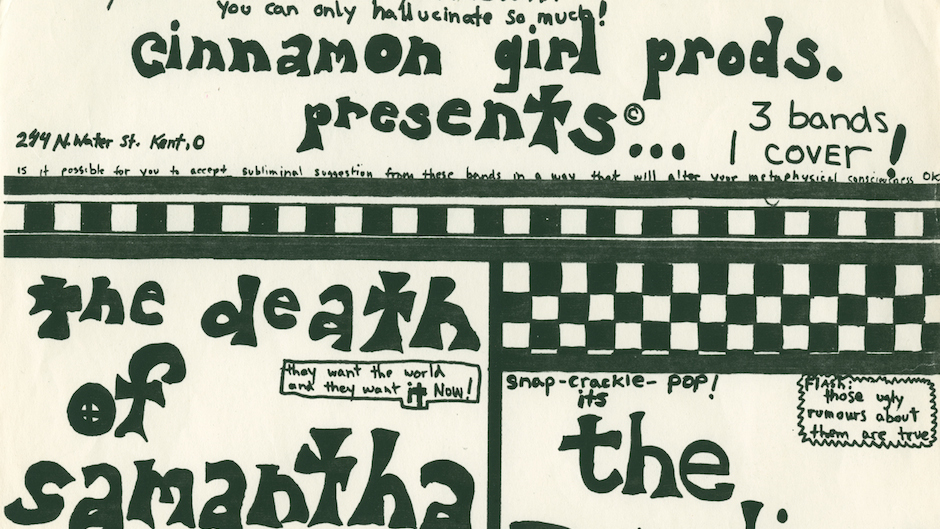 you can only hallucinate so much!
cinnamon girl prods.
presents© ...
244 N. Water St. Kent, O
3 bands
1 COVER!
is it possible for you to accept subliminal suggestion from these bands in a way that will alter your metaphysical consciousness OK
the death
of
samantha
they want the world
and they want it Now!
snap-crackle-POP!
its
the
Flash:
those ugly
rumours about
them are true